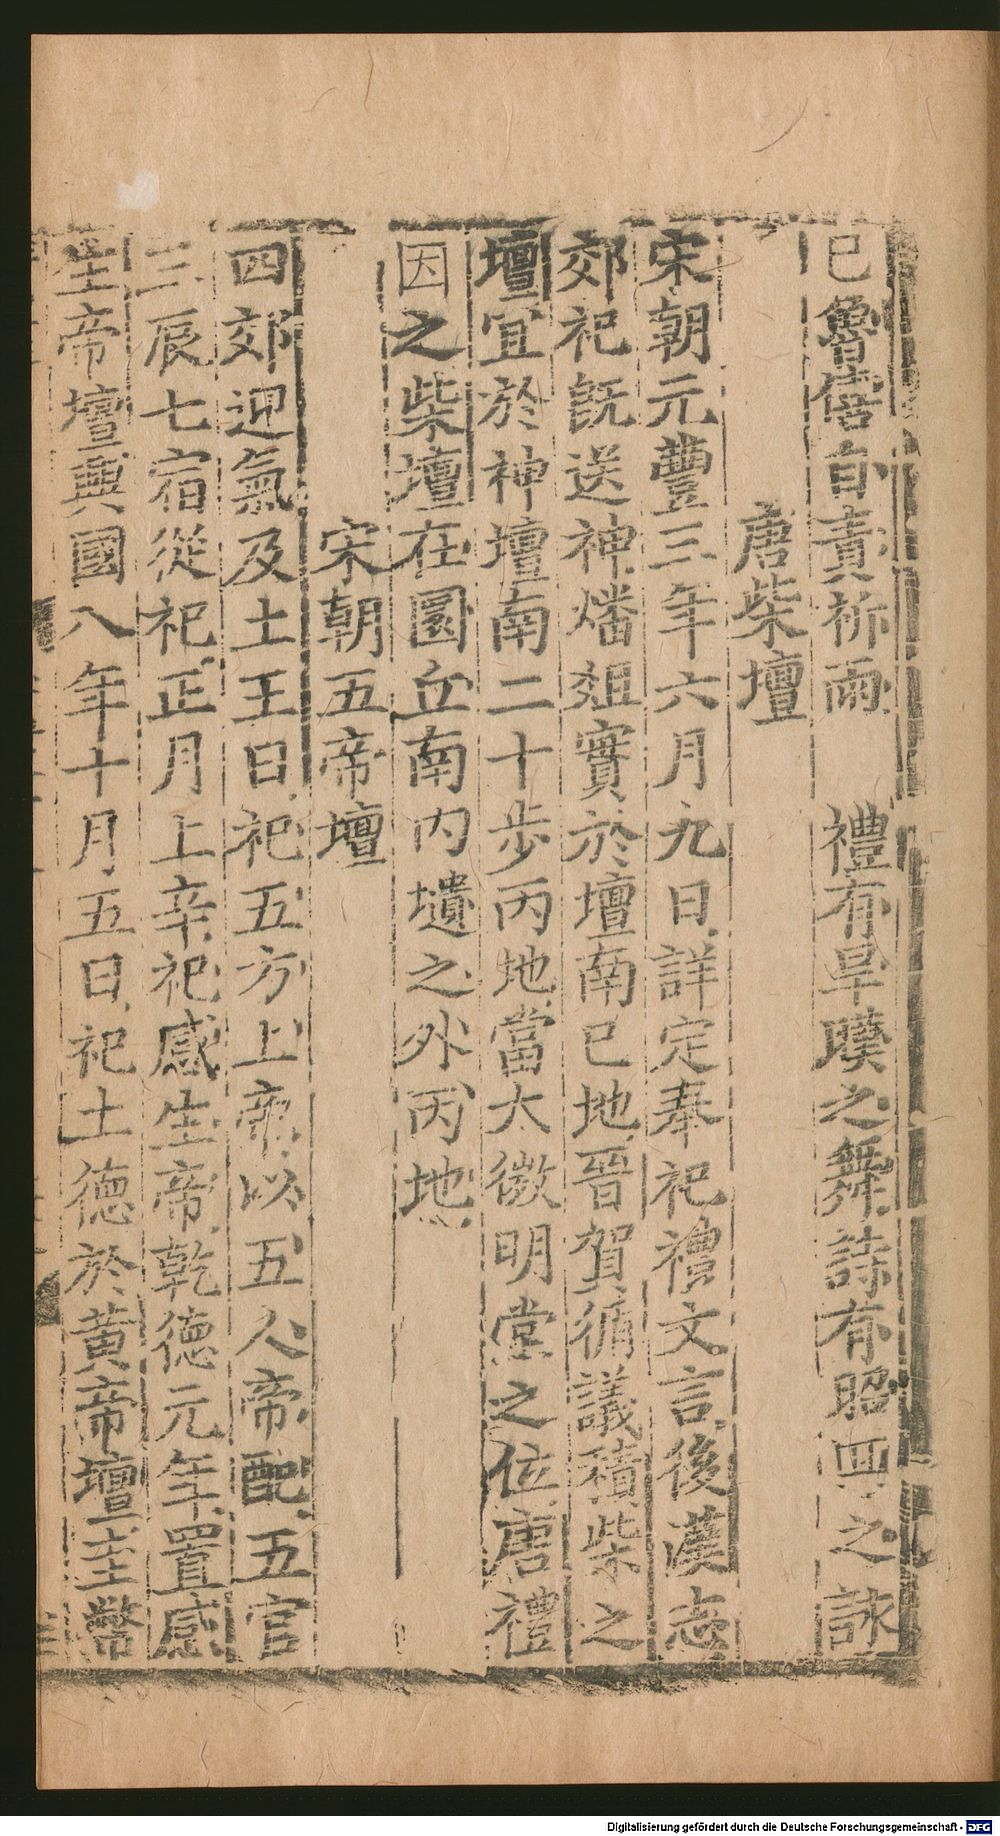 已魯僖自責祈雨　禮有旱暵之舞詩有昭回之詠
唐柴壇
宋朝元豐三年六月九日詳定奉祀禮文言後漢志
郊祀既送神燔俎實於壇南巳地晉賀循議積柴之
壇宜於神壇南二十步丙地當太微明堂之位唐禮
因之柴壇在圜丘南內壝之外丙地
宋朝五帝壇
四郊迎氣及土王日祀五方上帝以五人帝配五官
三辰七宿從祀正月上辛祀感生帝乾德元年置感
生帝壇興國八年十月五日祀土德於黃帝壇圭幣
Digitalisierung gefördert durch die Deutsche Forschungsgemeinschaft - DFG